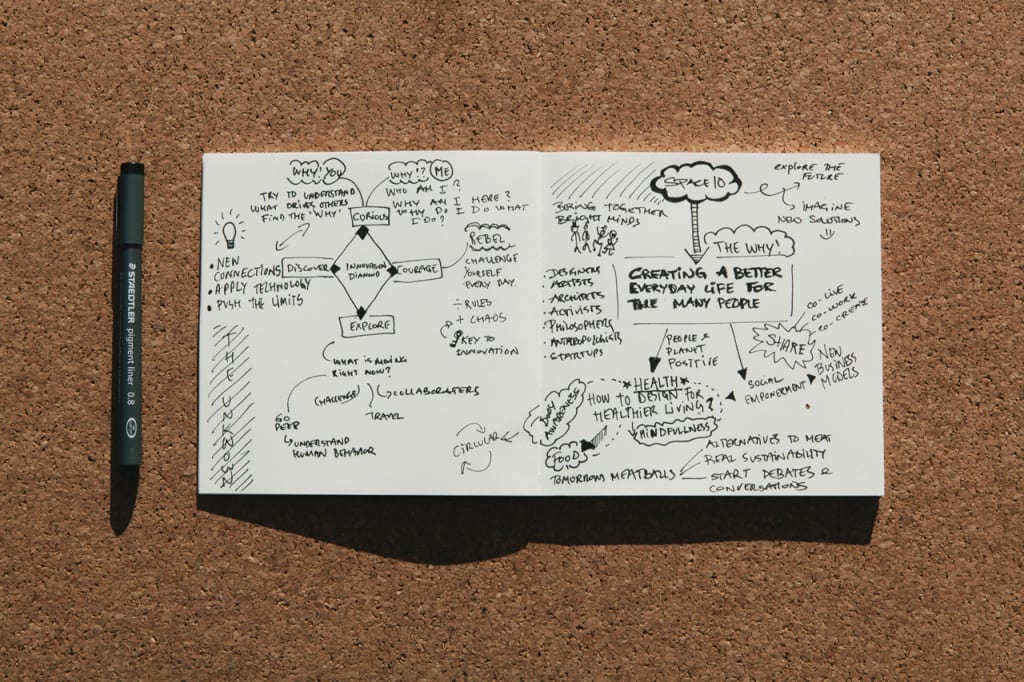 STAEDTLER pigment liner 0.8
WHY? YOU
TRY TO UNDERSTAND
WHAT DRIVES OTHERS
FIND THE 'WHY'
WHY!? ME
WHO AM I?
WHY AM I HERE?
WHY DO I DO WHAT
I DO?
CURIOUS
DISCOVER
INNOVATION
DIAMOND
COURAGE
EXPLORE
• NEW
CONNECTIONS
• APPLY TECHNOLOGY
• PUSH THE LIMITS
REBEL
CHALLENGE
YOURSELF
EVERY DAY.
÷ RULES
+ CHAOS
KEY TO
INNOVATION
THE UNKNOWN
WHAT IS
RIGHT NOW?
CHALLENGE
COLLABORATERS
TRAVEL
GO
DEEP
UNDERSTAND
HUMAN BEHAVIOR
CIRCULAR
SPACE10
EXPLORE THE
FUTURE
IMAGINE
NEW SOLUTIONS
BRING TOGETHER
BRIGHT MINDS
• DESIGNERS
• ARTISTS
• ARCHITECTS
• ACTIVISTS
• PHILOSOPHERS
• ANTHROPOLOGISTS
• STARTUPS
THE WHY!
CREATING A BETTER
EVERYDAY LIFE FOR
THE MANY PEOPLE
CO-LIVE
CO-WORK
CO-CREATE
SHARE
NEW
BUSINESS
MODELS
PEOPLE &
PLANET
POSITIVE
SOCIAL
EMPOWERMENT
HEALTH
HOW TO DESIGN FOR
HEALTHIER LIVING?
MINDFULLNESS
BODY
AWARENESS
FOOD
TOMORROWS MEATBALLS
ALTERNATIVES TO MEAT
REAL SUSTAINABILITY
START DEBATES &
CONVERSATIONS